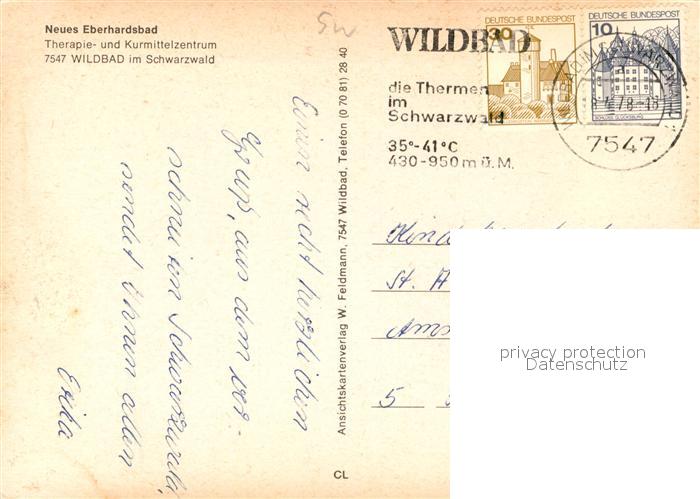 Neues Eberhardsbad
Therapie- und Kurmittelzentrum
7547 WILDBAD im Schwarzwald
Sw
WILDBAD
die Thermen
im
Schwarzwald
35°-41°C
430-950 m ü. M.
30
DEUTSCHE BUNDESPOST
10
DEUTSCHE BUNDESPOST
SCHLOSS GLÜCKSBURG
7547
Einen recht herzlichen
Gruß, aus dem ver-
schneiten Schwarzwald,
sendet Ihnen allen
Erika
Ansichtskartenverlag W. Feldmann, 7547 Wildbad, Telefon (0 70 81) 28 40
CL
St.
5
privacy protection
Datenschutz